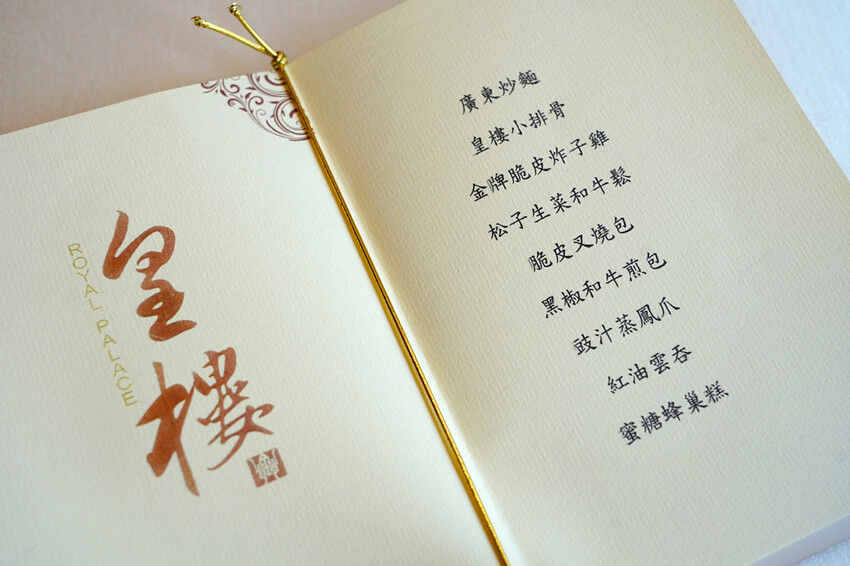 皇樓
ROYAL PALACE
廣東炒麵
皇樓小排骨
金牌脆皮炸子雞
松子生菜和牛鬆
脆皮叉燒包
黑椒和牛煎包
豉汁蒸鳳爪
紅油雲吞
蜜糖蜂巢糕